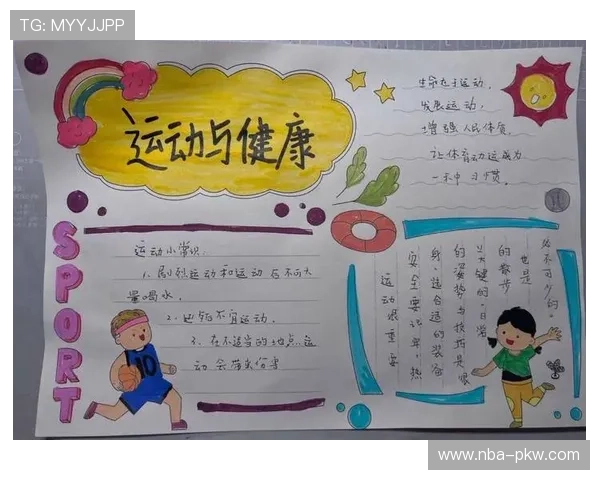 TG: MYYJJPP
运动与健康
生命在于运动,
发展运动,
增强人民体质,
让体育动运成为
一不中习惯。
SPORT
运动小常识:
1. 剧烈运动和运动后不可大
量喝水.
2. 不宜运动.
3. 在不适当的地点运
动会带来伤害
运动很重要
安全要记牢,热
身,适合适的装备
的姿势与技巧是很
关键的,日常
的散步
也是
必不可少的。
10
www.nba-pkw.com